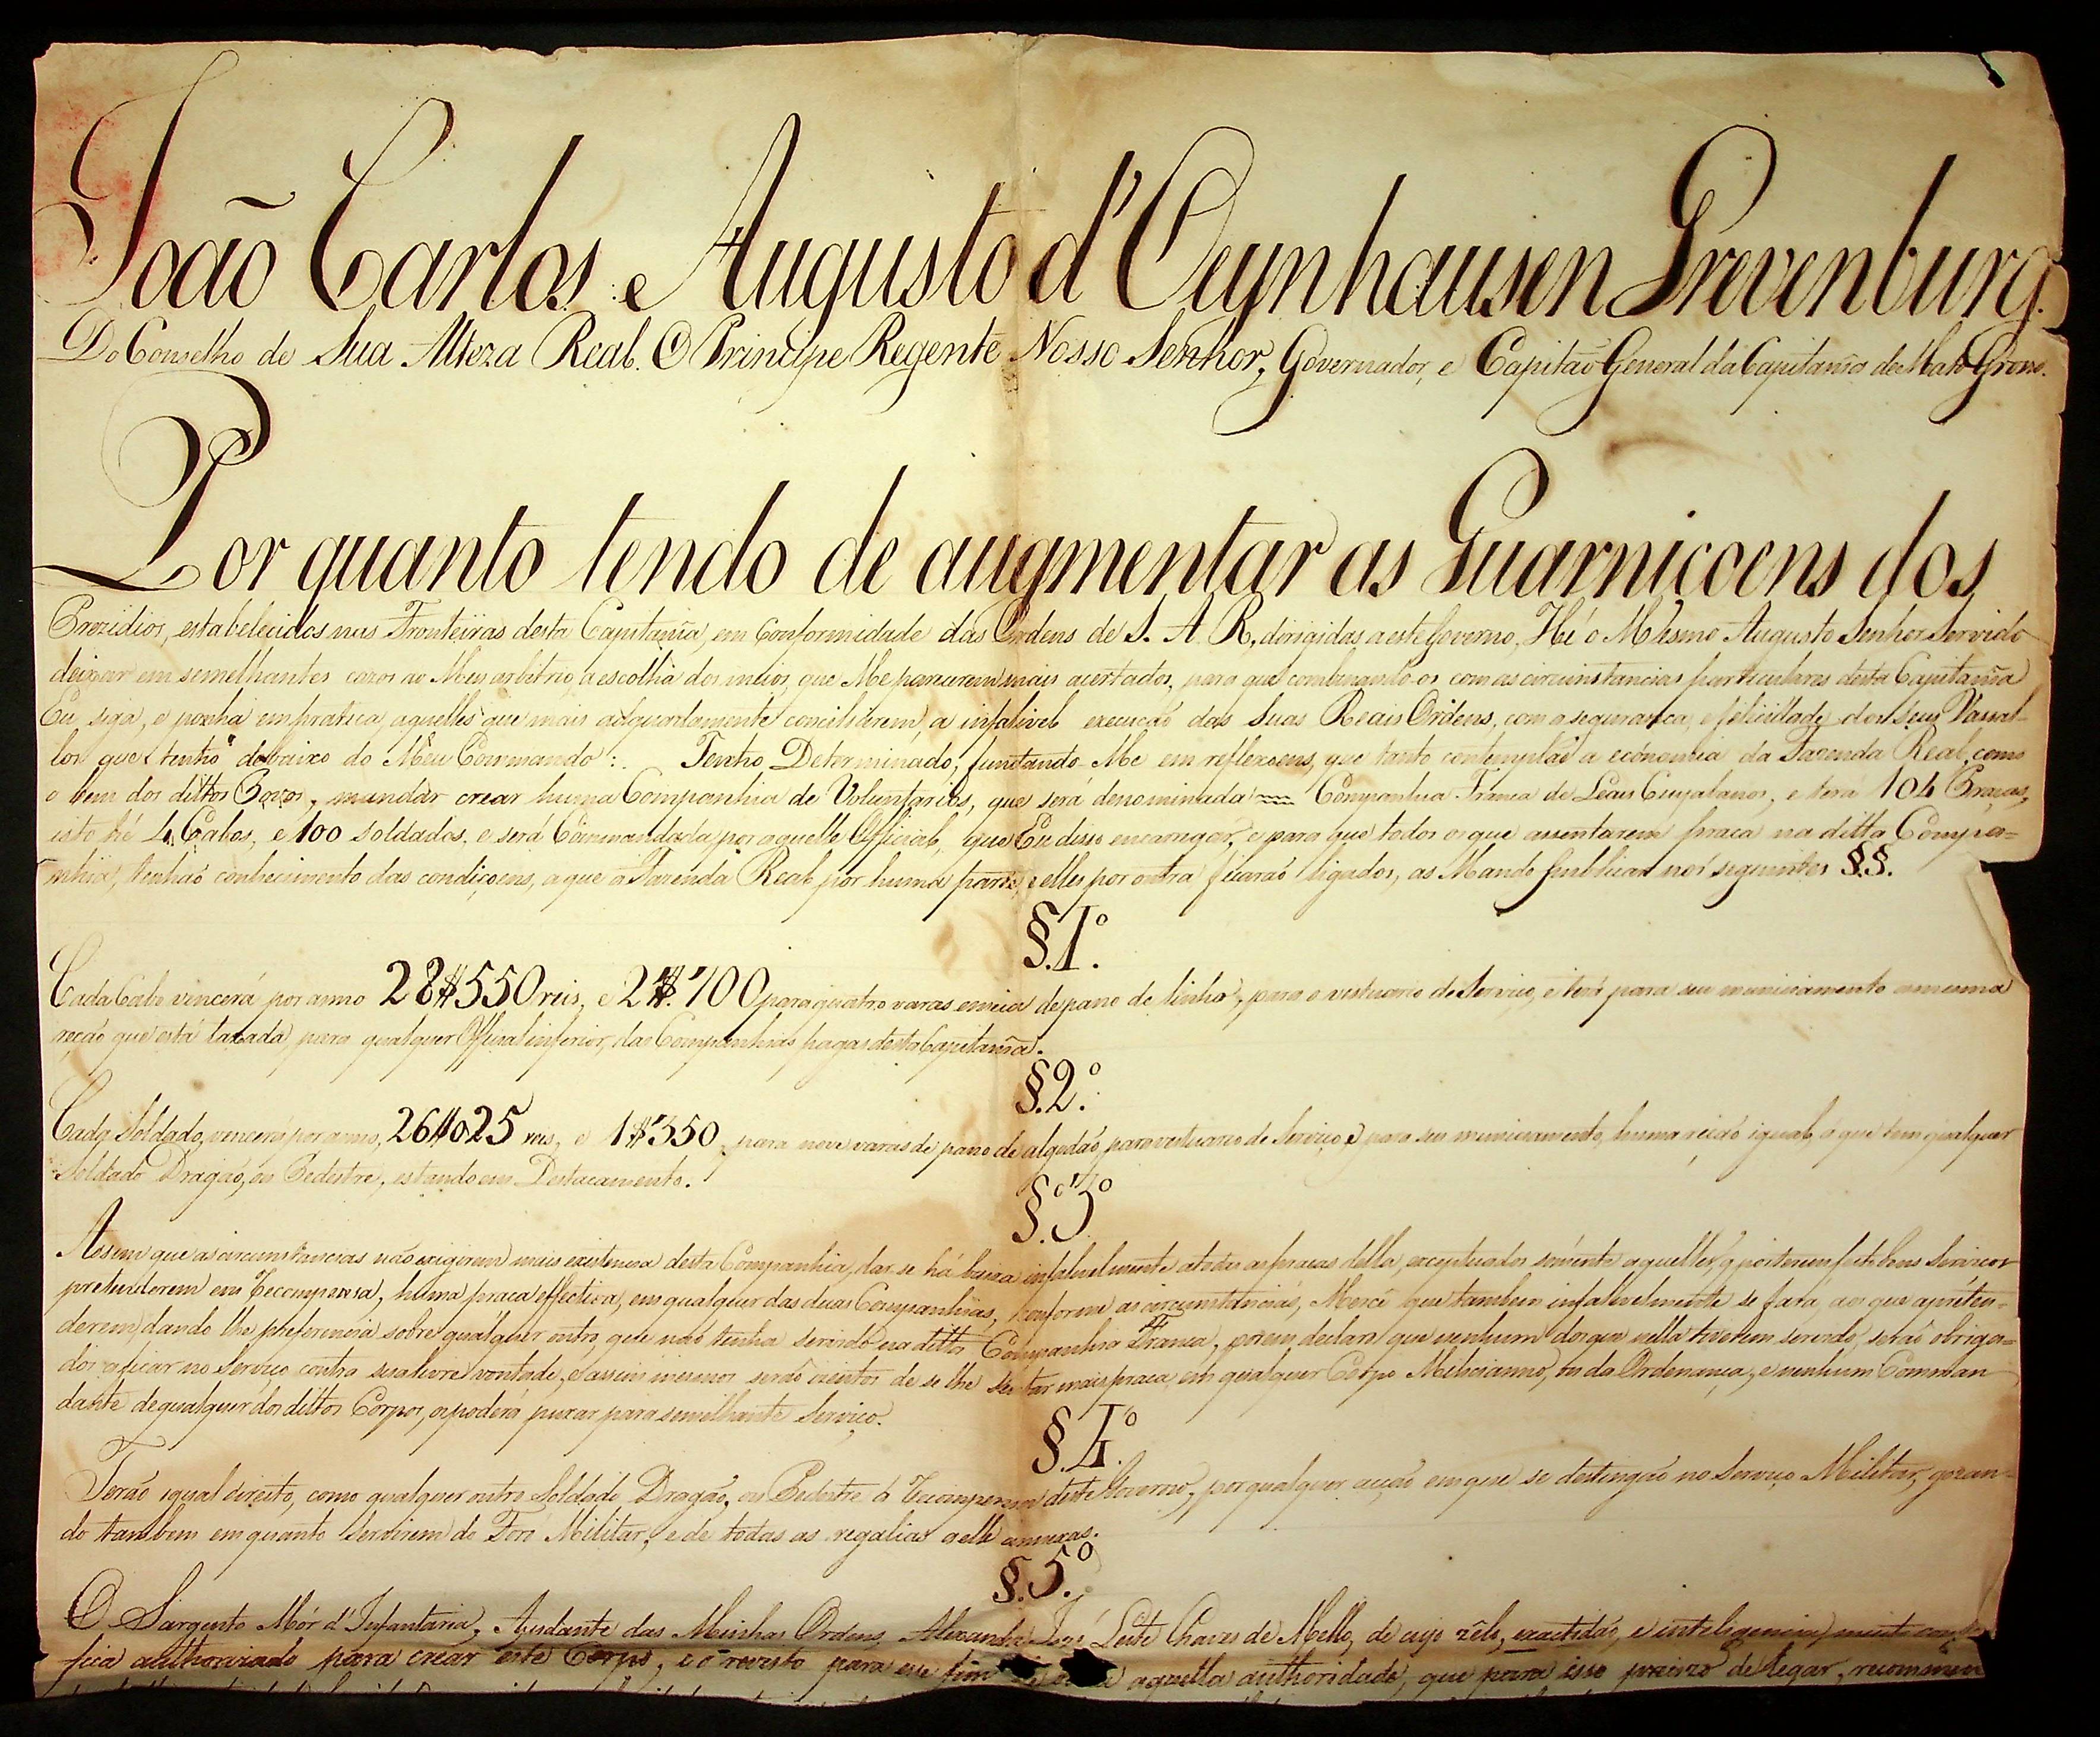 João Carlos e Augusto d'Oeynhausen Grevenburg.
Do Conselho de Sua Alteza Real. O Principe Regente Nosso Senhor, Governador, e Capitaõ General da Capitania de Mato Grosso.
Por quanto tendo de augmentar as Guarnicoens dos
Prezidios, estabelecidos nas Fronteiras desta Capitania, em conformidade das Ordens de S. A. R, dirigidas a este Governo, Hé o Mesmo Augusto Senhor Servido
deixar em semelhantes cazos ao Meu arbitrio, a escolha dos meios, que Me parecerem mais acertados, para que combinando-os com as circunstancias particulares desta Capitania
Eu, siga, e ponha em pratica, aquelles que mais adquadamente conciliarem, a infalivel execução das Suas Reais Ordens, com a segurança, e felicidade dos Seus Vassal-
los que tenho debaixo do Meu Commando: Tenho Determinado, fundando-Me em reflexoens, que tanto contemplaõ a economia da Fazenda Real, como
o bem dos dittos Povos, mandar crear huma Companhia de Voluntarios, que será denominada Companhia Franca de Leais Cuyabanos, e terá 104 Praças,
isto hé 4 Cabos, e 100 Soldados, e será Commandada por aquelle Official, que Eu disso encarregar, e para que todos os que assentarem praca na ditta Compa=
nhia, tenhaõ conhecimento das condiçoens, a que a Fazenda Real por huma parte, e elles por outra ficaraõ ligados, as Mando publicar nos seguintes §.§.
§.1.º
Cada Cabo vencerá por anno 28$550 reis, e 2$700 para quatro varas e meia de pano de linho, para o vestuario do Serviço, e terá para seu municiamento a mesma
reçaõ que está taxada, para qualquer Official inferior, das Companhias pagas desta Capitania.
§.2.º
Cada Soldado, vencerá por anno, 26$025 reis, e 1$350 para nove varas de pano de algodaõ, para vestuario de Serviço e para seu municiamento, huma reçaõ igual, á que tem qualquer
Soldado Dragaõ, ou Pedestre, estando em Destacamento.
§.3.º
Assim que as circunstancias naõ exigirem mais existencia desta Companhia, dar-se há baixa infalivelmente a todas as praças della, exceptuados sómente aquelles, q̃ por terem feito bons Serviços
pretenderem em recompensa, huma praca effectiva, em qualquer das duas Companhias, conforme as circunstancias, Mercê que tambem infalivelmente se fará, aos que a preten=
derem, dando lhe preferencia sobre qualquer outro, que naõ tenha servido na ditta Companhia Franca, porem, declaro que nenhum dos que nella tiverem servido, seraõ obriga=
dos a ficar no Serviço contra sua livre vontade, e assim mesmo seraõ izentos de se lhe sentar mais praca, em qualquer Corpo Melicianno, ou da Ordenança, e nenhum Comman
dante de qualquer dos dittos Corpos, os poderá puxar para semelhante Serviço.
§.4.º
Teraõ igual direito, como qualquer outro Soldado Dragaõ, ou Pedestre á recompensa deste Governo, por qualquer acçaõ em que se destingaõ no Serviço Militar, gozan=
do tambem em quanto Servirem do Foro Militar, e de todas as regalias a elle annexas.
§.5.º
O Sargento Mór d'Infantaria, Ajudante das Minhas Ordens, Alexandre José Leite Chaves de Mello, de cujo zêlo, exactidaõ, e inteligencia, muito
fica authorizado para crear este Corpo, e o revisto para esse fim aquella authoridade, que para isso precizo delegar, recommen